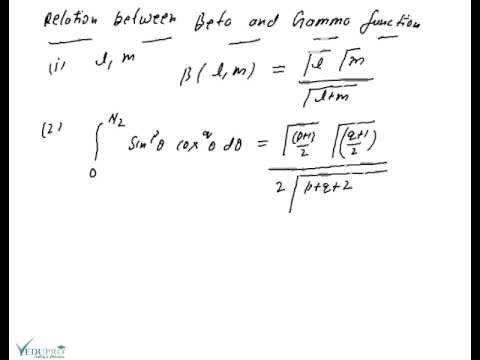 Relation between Beta and Gamma function
(i) l, m β(l, m) = Γl Γm / Γl+m
(2) ∫₀^π/2 sin^p θ cos^q θ dθ = Γ(p+1)/2 Γ(q+1/2) / 2 Γp+q+2
VEDUPRO